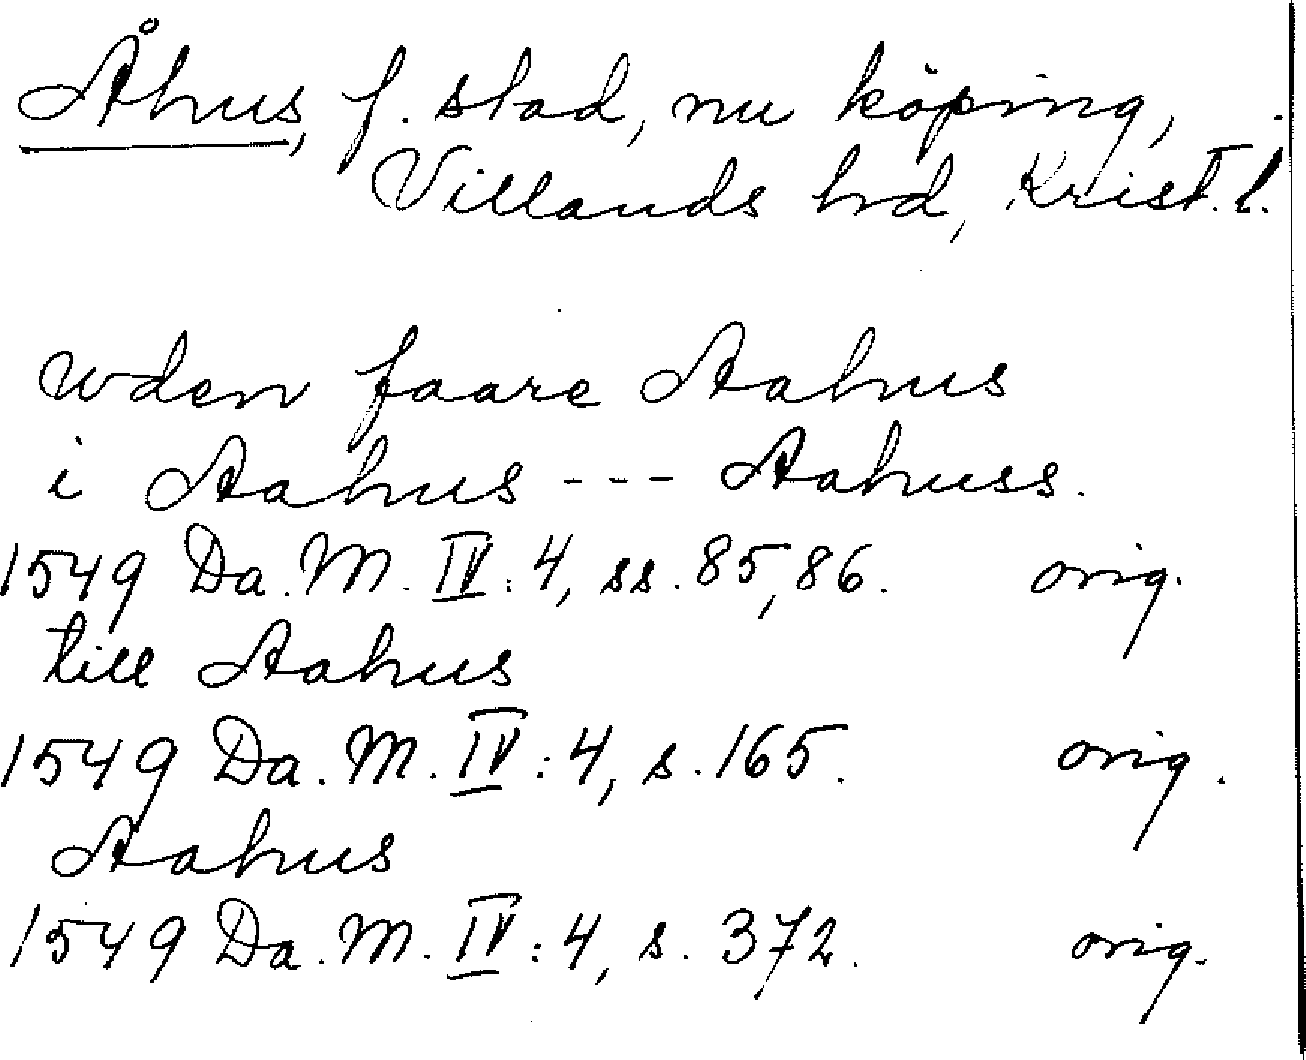 Åhus, f. stad, nu köping,
Villands hrd, Krist. l.
wden faare Aahus
i Aahus --- Aahuss.
1549 Da. M. IV:4, ss. 85,86. orig.
till Aahus
1549 Da. M. IV:4, s. 165. orig.
Aahus
1549 Da. M. IV:4, s. 372. orig.